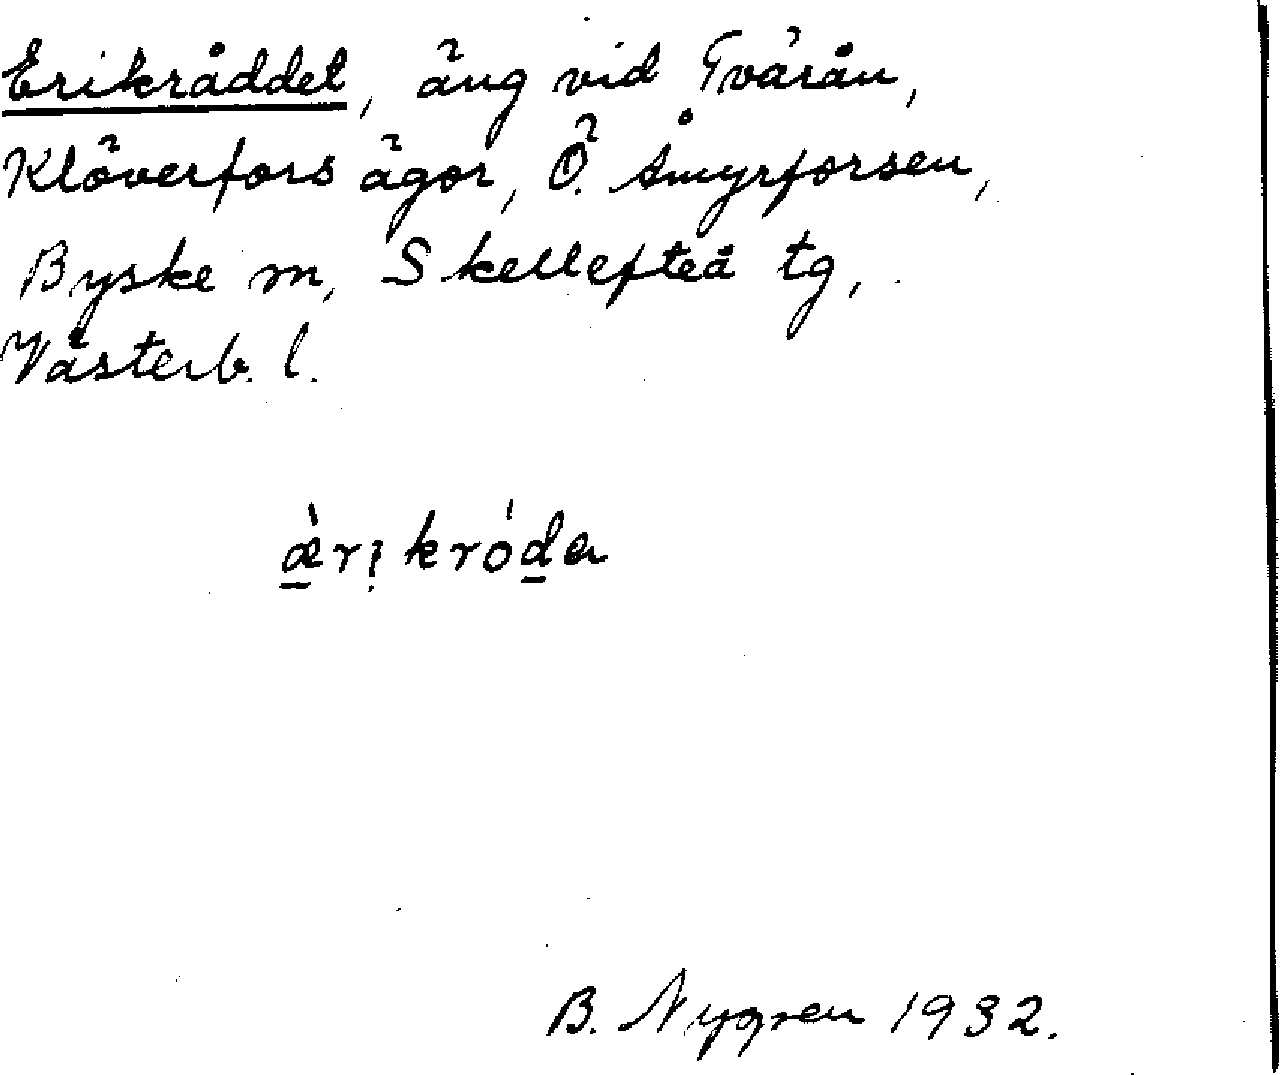 Erikråddet, äng vid Tvärån,
Klöverfors ägor, Ö. Åmyrforsen,
Byske sn, Skellefteå tg,
Västerb. l.
æ̀rikróda
B. Nygren 1932.